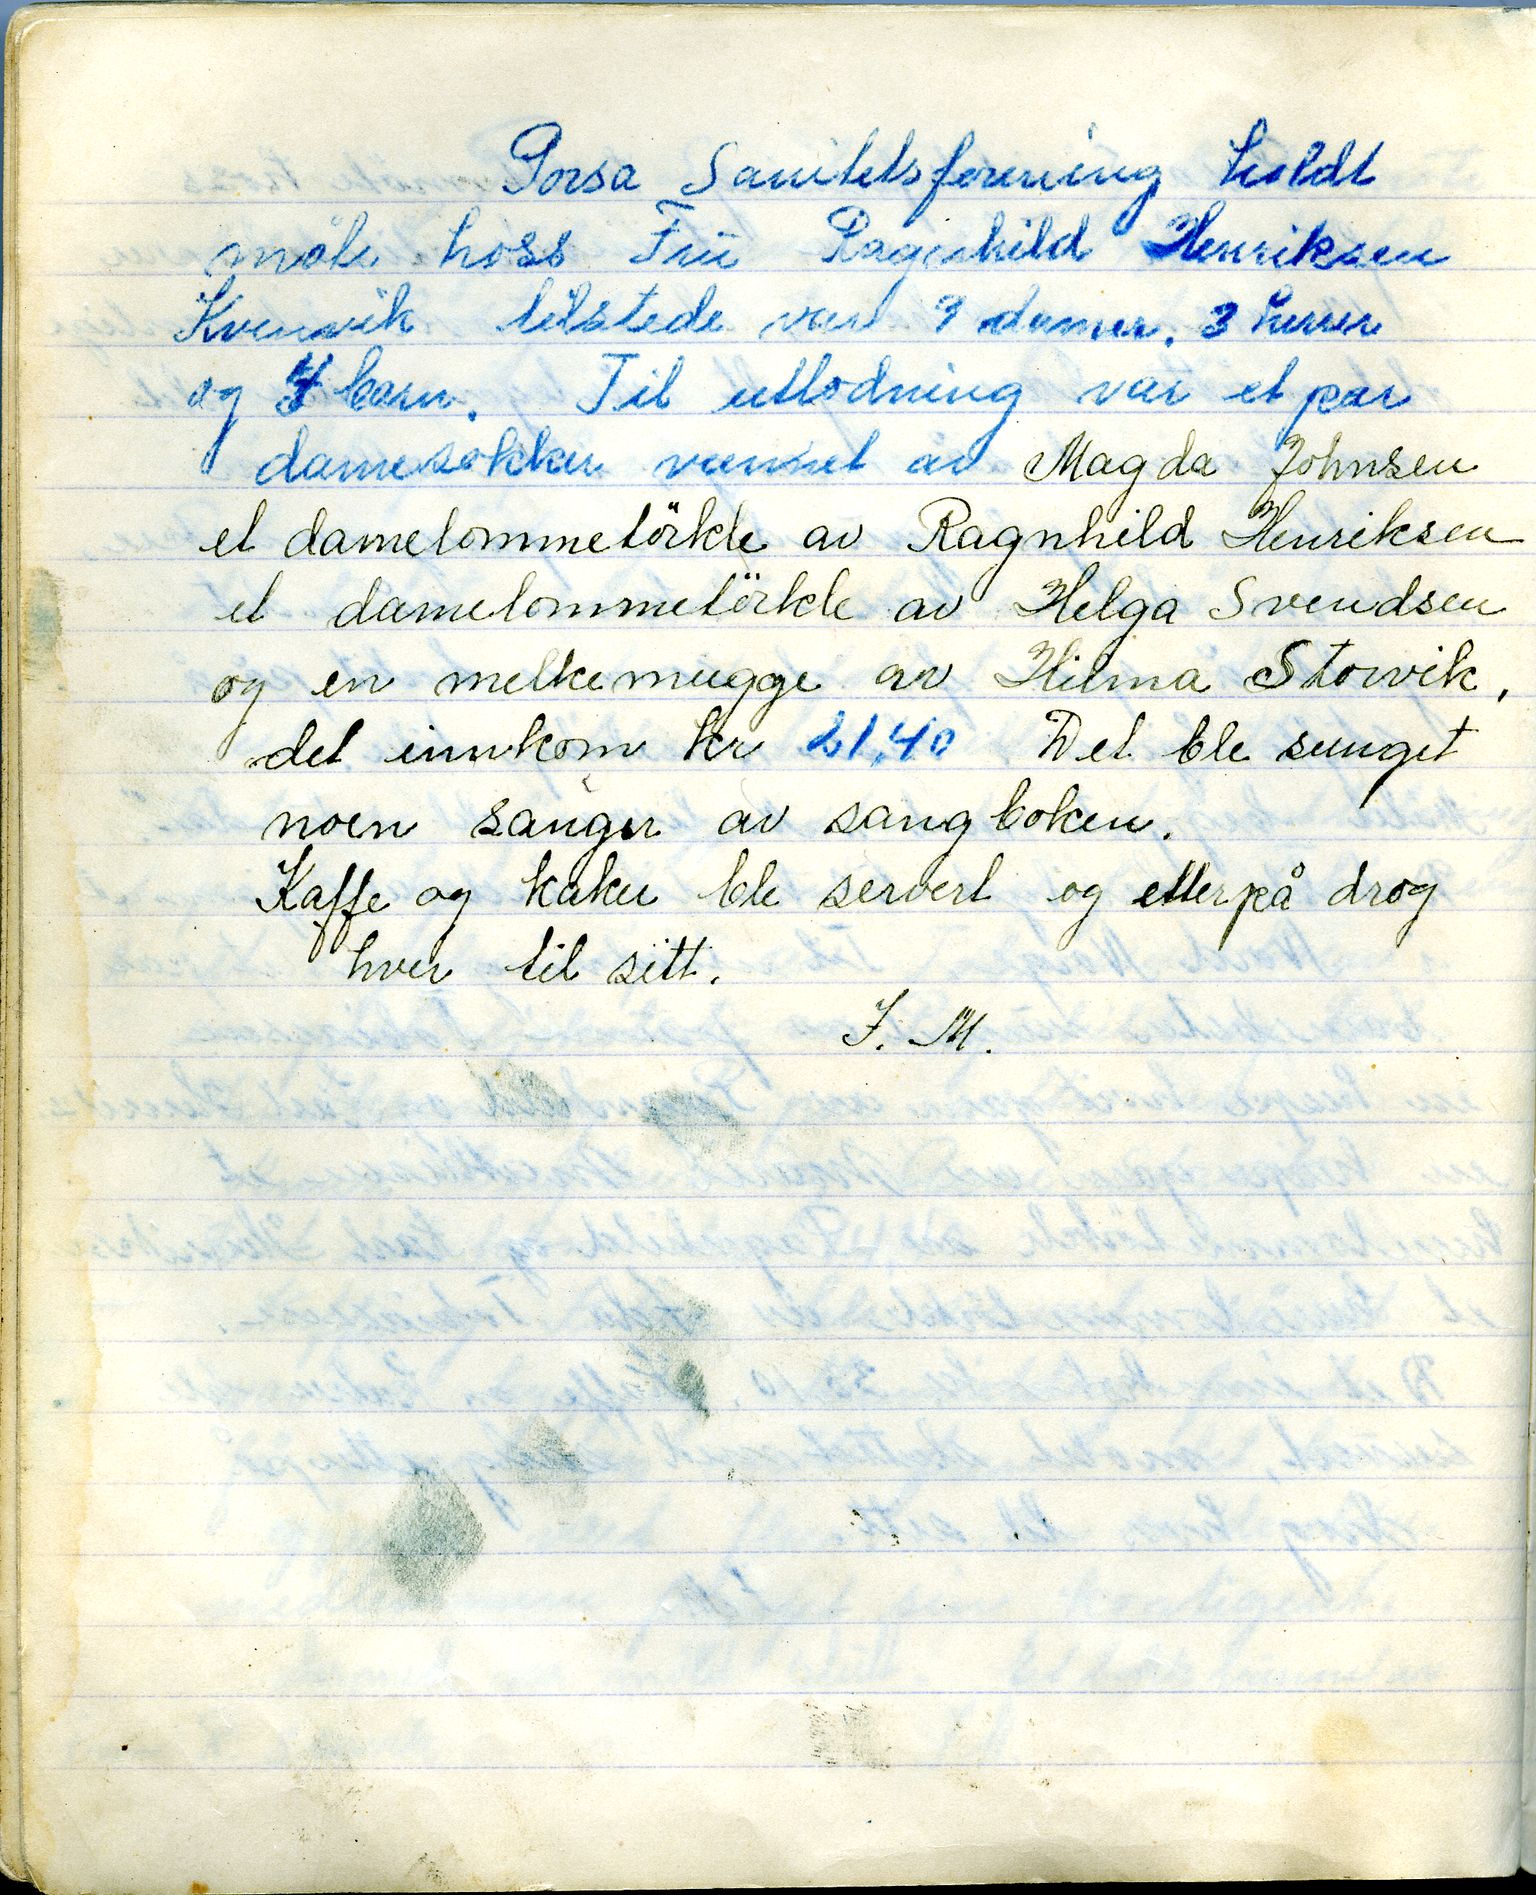 Porsa Sanitetsforening holdt
møte hoss Frü Ragnhild Henriksen
Kvenvik tilstede var 7 damer. 3 herrer
og 4 barn. Til utlodning var et par
damesokker vunnet av Magda Johnsen
et damelommetörkle av Ragnhild Henriksen
et damelommetörkle av Helga Svendsen
og en melkemugge av Hilma Storvik,
det innkom kr 21,40 Det ble sunget
noen sanger av sangboken.
Kaffe og kaker ble servert og etterpå drog
hver til sitt.
J. M.